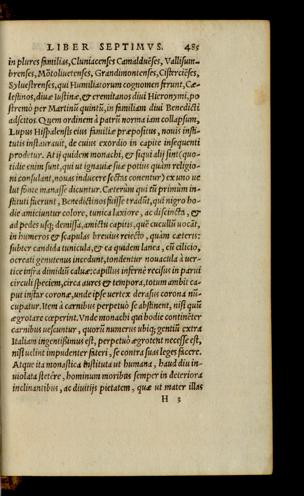 LIBER SEPTIMVS. 485
in plures familias, Cluniacenses Camalduēses, Vallisum-
brenses, Mōtoliuetenses, Grandimontenses, Cisterciēses,
Syluestrenses, qui Humiliatorum cognomen ferunt, Cæ-
lestinos, diuæ Iustinæ, & eremitanos diui Hieronymi, po
stremò per Martinū quintū, in familiam diui Benedicti
adscitos. Quem ordinem à patrū norma iam collapsum,
Lupus Hispalensis eius familiæ præpositus, nouis insti-
tutis instaurauit, de cuius exordio in capite insequenti
prodetur. At ij quidem monachi, & siqui alij sint (quo-
tidie enim sunt, qui ut ignauiæ suæ potius quàm religio-
ni consulant, nouas inducere sectas conentur) ex uno ue
lut fonte manasse dicuntur. Cæterùm qui tū primùm in-
stituti fuerunt, Benedictinos fuisse tradūt, qui nigro ho-
die amiciuntur colore, tunica laxiore, ac discincta, &
ad pedes usq; demissa, amictu capitis, quē cucullū uocāt,
in humeros & scapulas breuius reiecto, quàm cæteris:
subest candida tunicula, & ea quidem lanea, cū cilicio,
ocreati genutenus incedunt, tondentur nouacula à uer-
tice infra dimidiū caluæ: capillus infernè recisus in parui
circuli speciem, circa aures & tempora, totum ambit ca-
put instar coronæ, unde ipse uertex derasus corona nū-
cupatur. Item à carnibus perpetuò se abstinent, nisi quū
ægrotare cœperint. Vnde monachi qui hodie continēter
carnibus uescuntur, quorū numerus ubiq; gentiū extra
Italiam ingentissimus est, perpetuò ægrotent necesse est,
nisi uelint impudenter fateri, se contra suas leges facere.
Atque ita monastica instituta ut humana, haud diu in-
uiolata stetêre, hominum moribus semper in deteriora
inclinantibus, ac diuitijs pietatem, quæ ut mater illas
H 3